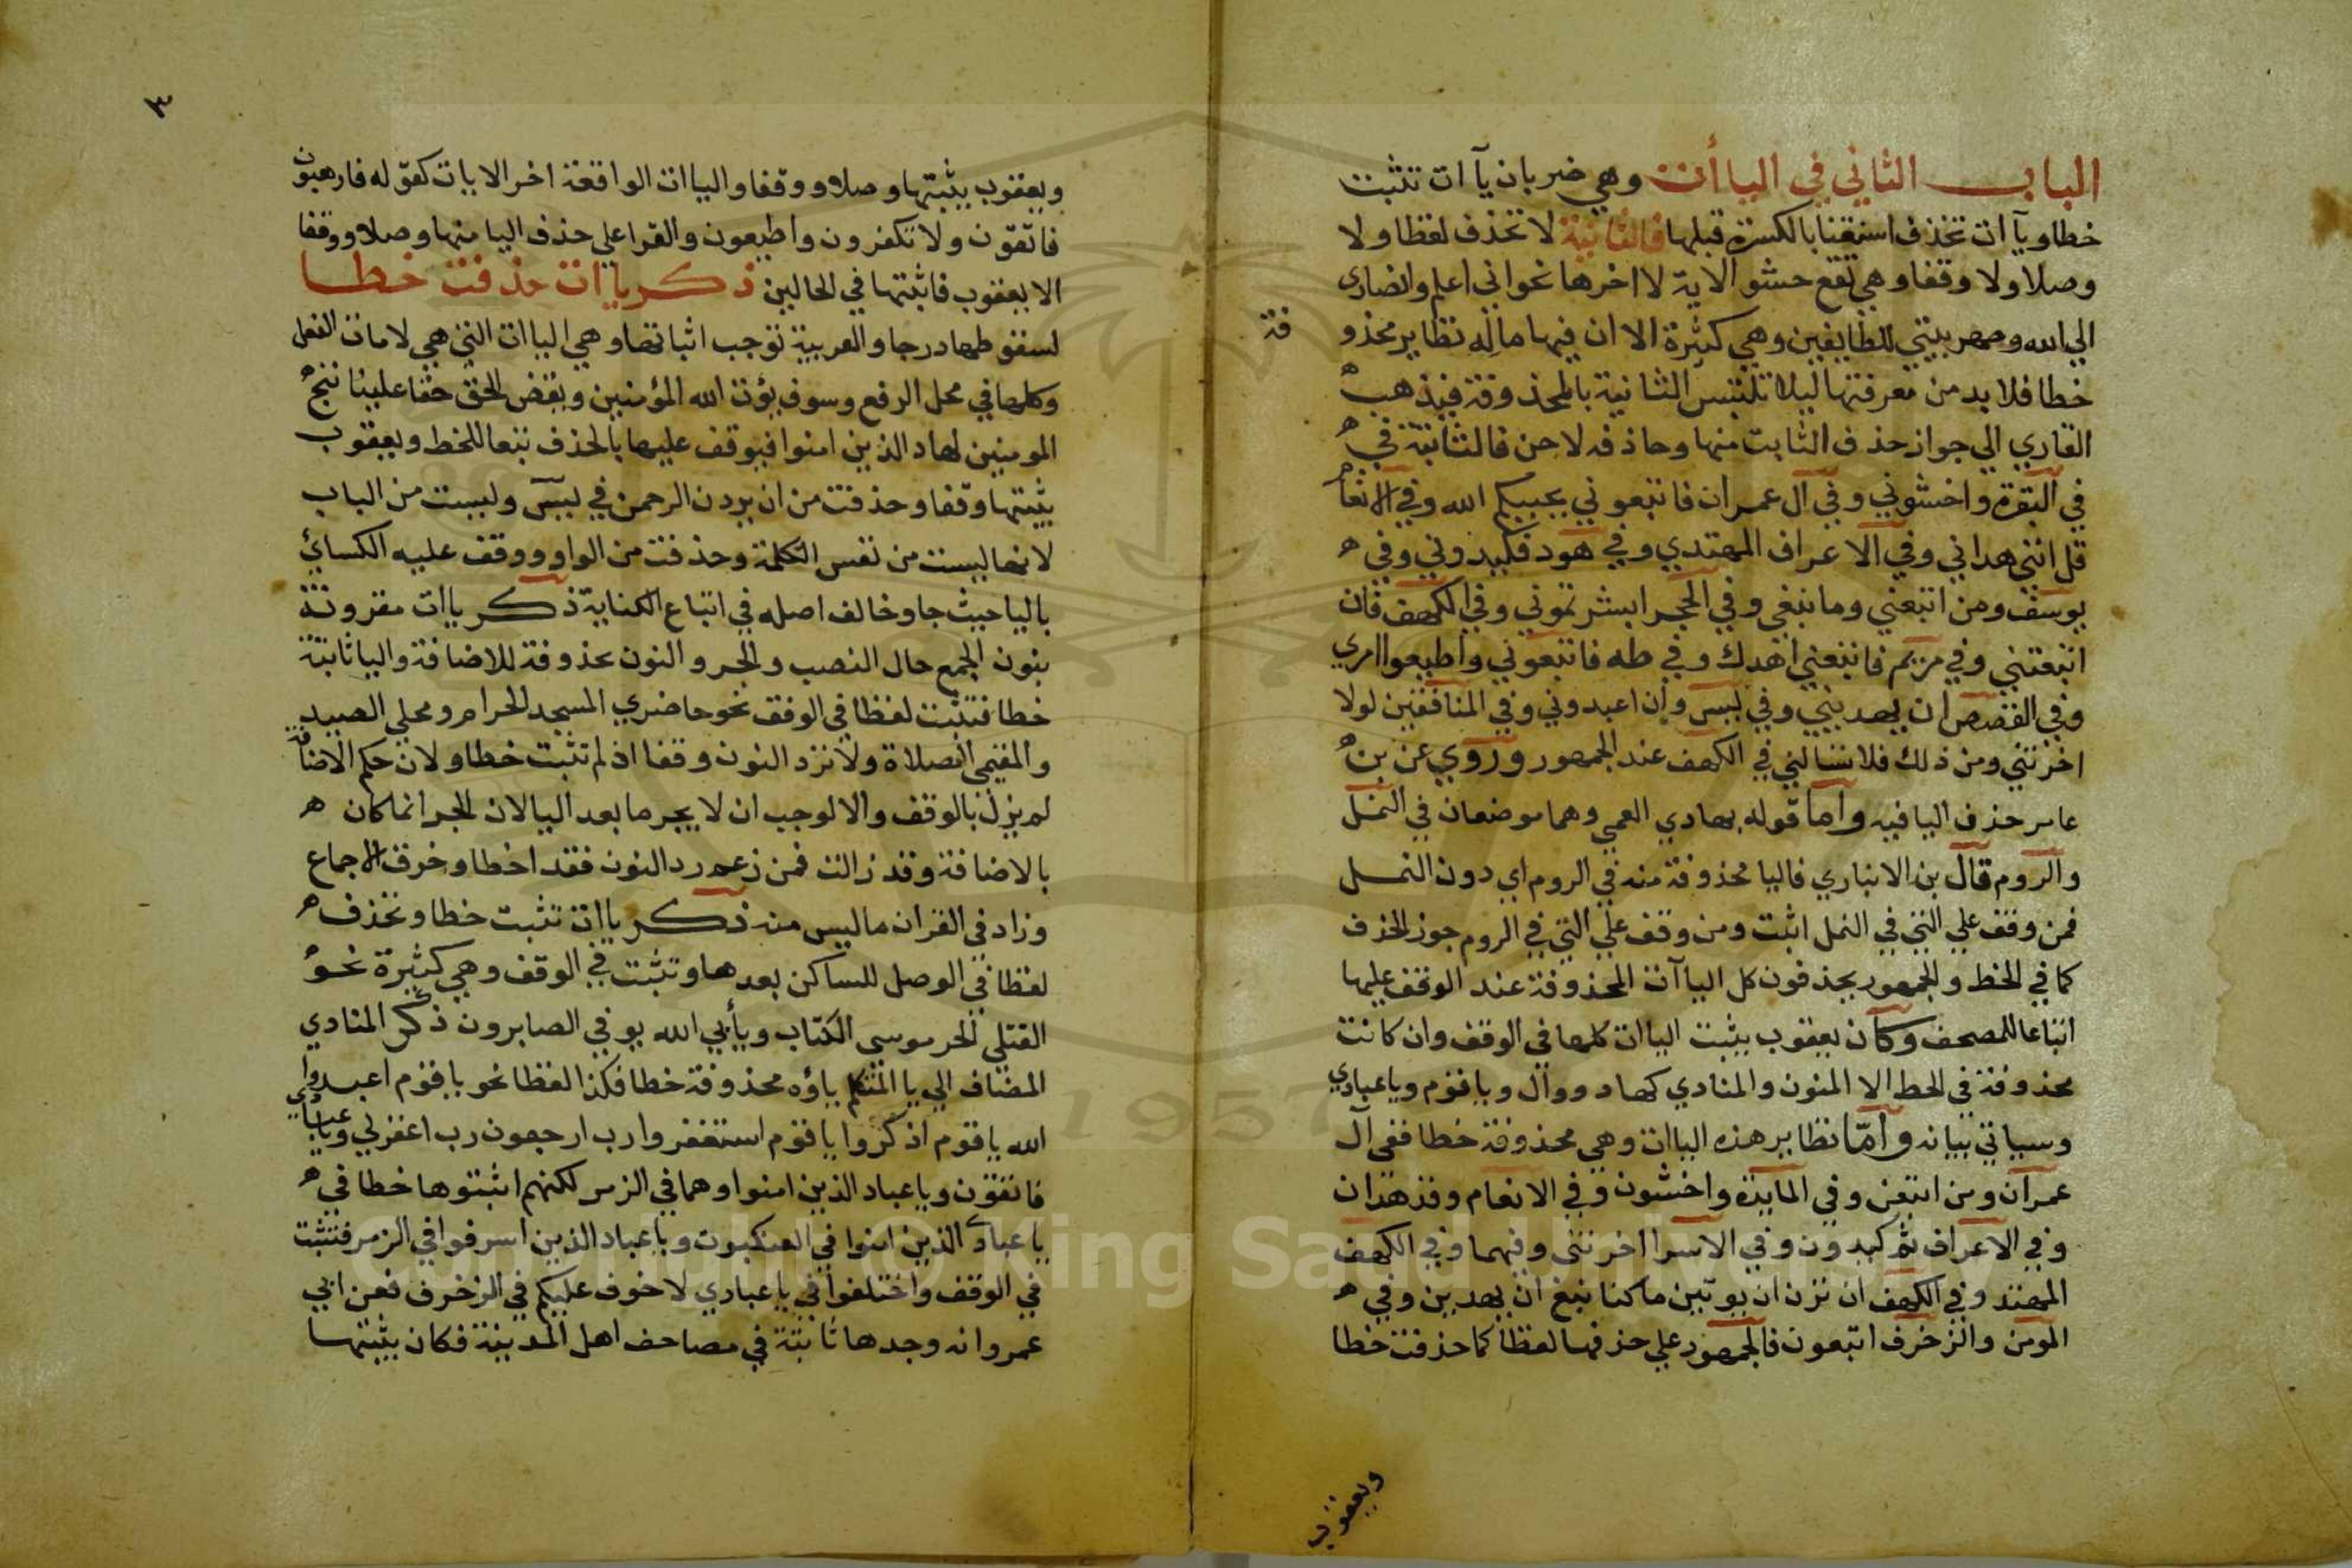 الباب الثاني في الياأت وهي ضربان يآات تثبت
خطا ويآات تحذف استغنا بالكسرة قبلها فالثانية لا تحذف لفظا ولا
وصلا ولا وقفا وهي تقع حشو الاية لا اخرها نحو اني اعلم وانصاري
الي الله وطهر بيتي للطايفين وهي كثيرة الا ان فيها ماله نظاير محذو
فة
خطا فلا بد من معرفتها ليلا تلتبس الثانية بالمحذوفة فيذهب
القاري الي جواز حذف الثابت منها وحاذفه لاحن فالثابتة في
في البقرة واخشوني وفي آل عمران فاتبعوني يحببكم الله وفي الانعا
قل انني هداني وفي الاعراف المهتدي وفي هود فكيدوني وفي
يوسف ومن اتبعني وما نبغي وفي الحجر ابشرتموني وفي الكهف فان
اتبعتني وفي مريم فاتبعني اهدك وفي طه فاتبعوني واطيعوا امري
وفي القصص ان يهديني وفي ليس وان اعبدوني وفي المنافقين لولا
اخرتني ومن ذلك فلا تسالني في الكهف عند الجمهور وروي عن بن
عامر حذف اليا فيه واما قوله بهادي العمي وهما موضعان في النمل
والروم قال بن الانباري فاليا محذوفة منه في الروم اي دون النمل
فمن وقف علي التي في النمل اثبت ومن وقف علي التي في الروم جوز الحذف
كما في الخط والجمهور يحذفون كل الياآت المحذوفة عند الوقف عليها
اتباعا للمصحف وكان يعقوب يثبت الياات كلها في الوقف وان كانت
محذوفة في الخط الا المنون والمنادي كهاد ووال وياقوم وياعبادي
وسياتي بيانه وامّا نظاير هذه الياات وهي محذوفة خطا ففي آل
عمران ومن اتبعن وفي المايدة واخشون وفي الانعام وقد هدان
وفي الاعراف ثم كيدون وفي الاسرا اخرتنى وفيهما وفي الكهف
المهتد وفي الكهف ان ترن ان يوتين ما كنا نبغ ان يهدين وفي
المومن والزخرف اتبعون فالجمهور علي حذفها لفظا كما حذفت خطا
ويعقوب
٣
ويعقوب يثبتها وصلا ووقفا والياات الواقعة اخر الايات كقوله فارهبون
فاتقون ولا تكفرون واطيعون والقرا علي حذف اليا منها وصلا ووقفا
الا يعقوب فاثبتها في الحالين ذكر ياات حذفت خطا
لسقوطها درجا والعربية توجب اثباتها وهي الياات التي هي لامات الفعل
وكلها في محل الرفع وسوف يؤت الله المؤمنين ويقض الحق حقا علينا ننج
المومنين لهاد الذين امنوا فيوقف عليها بالحذف تبعا للخط ويعقوب
يثبتها وقفا وحذفت من ان يردن الرحمن في ليس وليست من الباب
لانها ليست من نفس الكلمة وحذفت من الواو ووقف عليه الكسائ
باليا حيث جا وخالف اصله في اتباع الكناية ذكر ياات مقرونة
بنون الجمع حال النصب والجر والنون محذوفة للاضافة واليا ثابتة
خطا فتثبت لفظا في الوقف نحو حاضري المسجد الحرام ومحلي الصيد
والمقيمي الصلاة ولا ترد النون وقفا اذ لم تثبت خطا ولان حكم الاضافة
لم يزل بالوقف والا لوجب ان لا يجر ما بعد اليا لان الجر انما كان
بالاضافة وقد زالت فمن زعم رد النون فقد اخطا وخرق الاجماع
وزاد في القران ما ليس منه ذكر ياات تثبت خطا وتحذف
لفظا في الوصل للساكن بعدها وتثبت في الوقف وهي كثيرة نحو
القتلي الحر موسي الكتاب ويأبي الله يوفي الصابرون ذكر المنادي
المضاف الي يا المتكلم ياؤه محذوفة خطا فكذا لفظا نحو ياقوم اعبدوا
الله ياقوم اذكروا ياقوم استغفروا رب ارجعون رب اغفر لي وياعبادي
فاتقون وياعباد الذين امنوا وهما في الزمر لكنهم اثبتوها خطا في
ياعبادي الذين امنوا في العنكبوت وياعباد الذين اسرفوا في الزمر فتثبت
في الوقف واختلفوا في ياعبادي لا خوف عليكم في الزخرف فعن ابي
عمرو انه وجدها ثابتة في مصاحف اهل المدينة فكان يثبتها
1957
Copyright © King Saud University